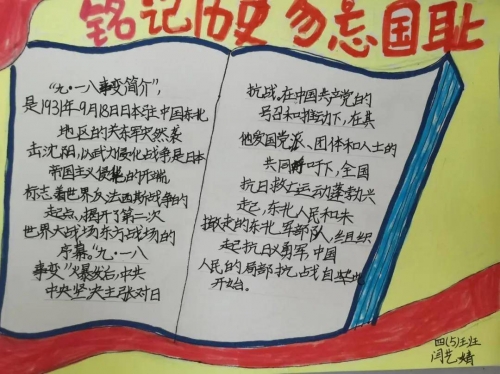 铭记历史勿忘国耻
“九·一八事变简介”，
是1931年9月18日日本驻中国东北
地区的关东军突然袭
击沈阳，以武力侵化战争是日本
帝国主义侵的开端，
标志着世界反法西斯战争的
起点，揭开了第二次
世界大战场东方战场的
序幕。“九·一八
事变”火爆发台，中共
中央坚决主张对日
抗战。在中国共产党的
号召和推动下，在其
他爱国党派、团体和人士的
共同呼吁下，全国
抗日救亡运动蓬勃兴
起，东北人民和未
撤走的东北军部队，组织
起抗日义勇军，中国
人民的局部抗战自此
开始。
四(5)班
闫艺婧